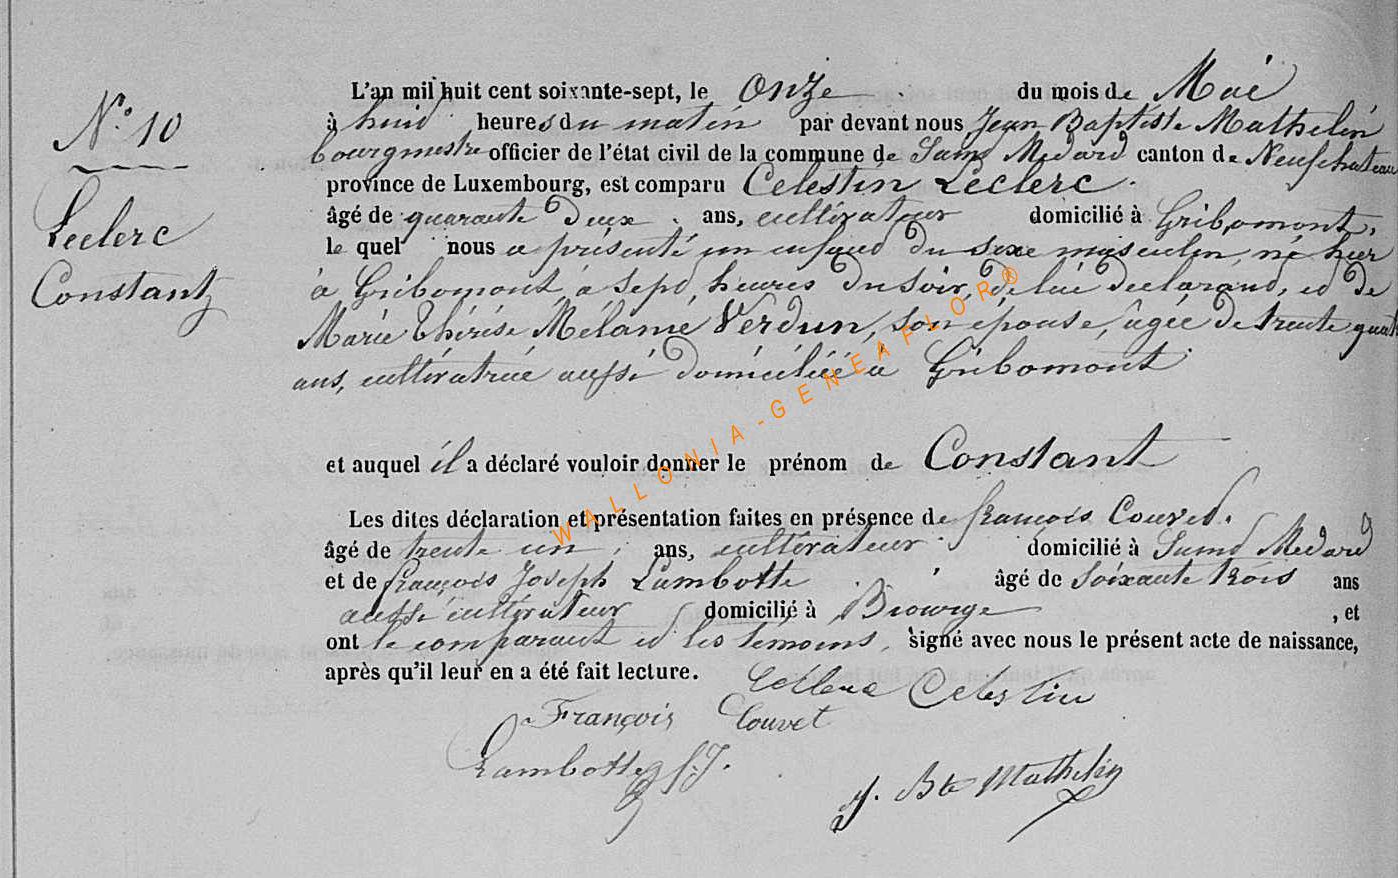 N° 10
Leclerc
Constant
L'an mil huit cent soixante-sept, le onze du mois de Mai
à huit heures du matin par devant nous Jean Baptiste Mathelin
bourgmestre officier de l'état civil de la commune de Saint Médard canton de Neufchateau
province de Luxembourg, est comparu Célestin Leclerc.
âgé de quarante deux ans, cultivateur domicilié à Gribomont,
le quel nous a présenté un enfant du sexe masculin, né hier
à Gribomont à sept heures du soir, de lui déclarant, et de
Marie Thérèse Mélanie Verdun, son épouse, âgée de trente quatre
ans, cultivatrice aussi domiciliée à Gribomont
et auquel il a déclaré vouloir donner le prénom de Constant
Les dites déclaration et présentation faites en présence de françois Couvet.
âgé de trente un ans, cultivateur domicilié à Saint Médard
et de françois Joseph Lambotte âgé de soixante trois ans
aussi cultivateur domicilié à , et
ont le comparant et les témoins, signé avec nous le présent acte de naissance,
après qu'il leur en a été fait lecture.
Celestin
François Couvet
Lambotte f. J.
J. Bte Mathelin
WALLONIA-GENEAFLOR®